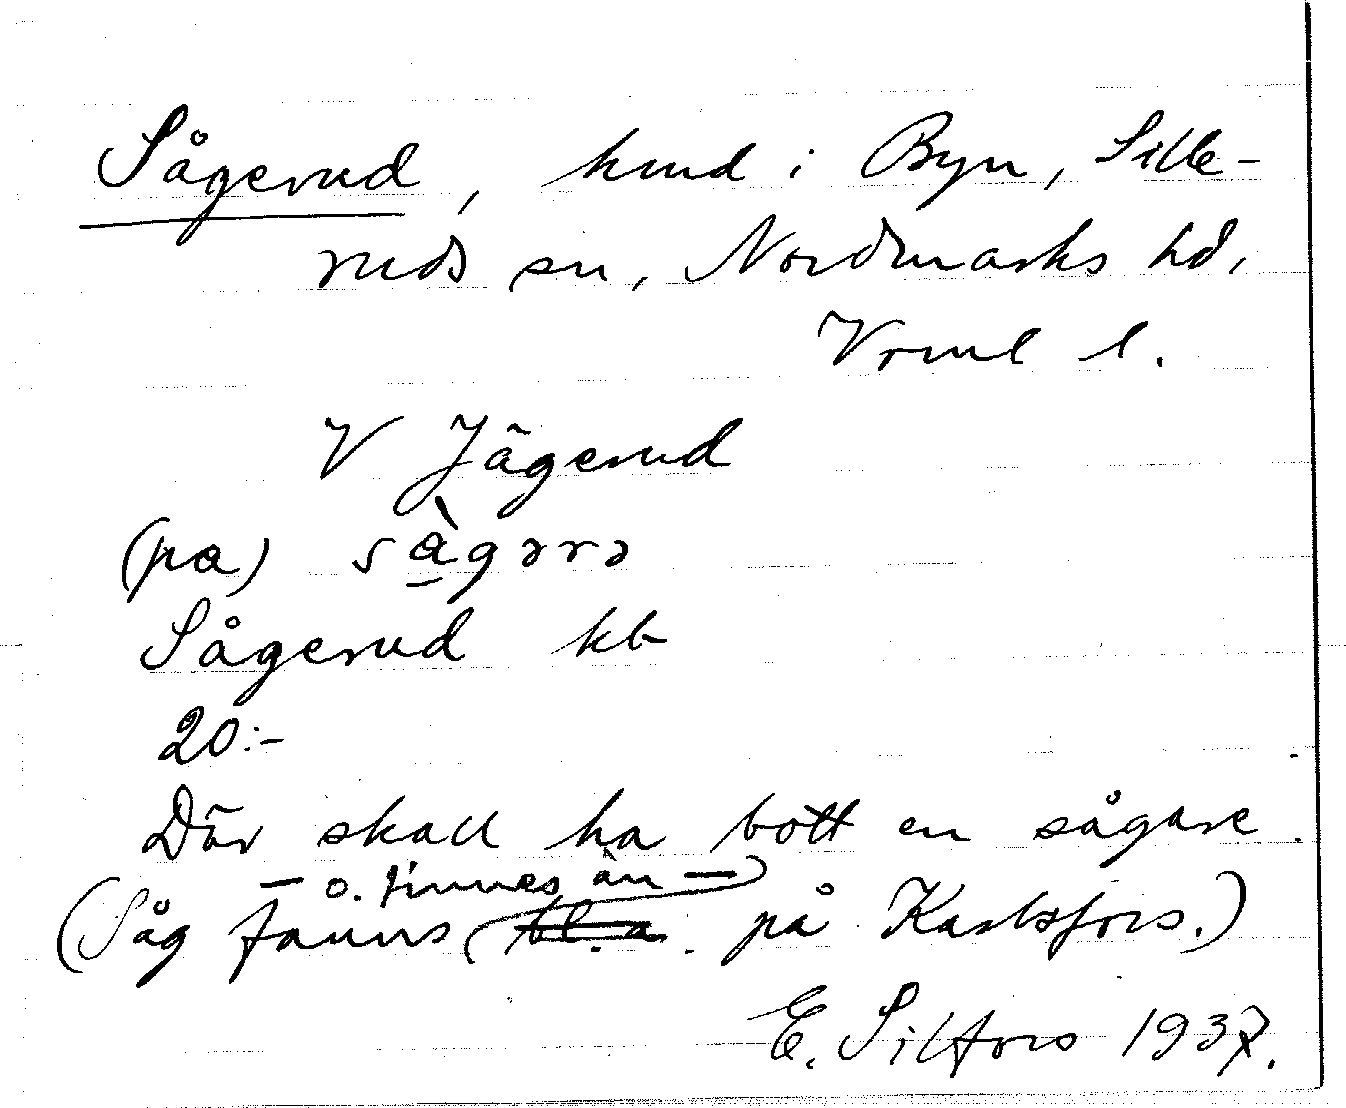 Sågerud, hmd i Byn, Sille-
ruds sn, Nordmarks hd,
Vrml l.
V Jägerud
(pa) sàgərə
Sågerud kb
20:-
Där skall ha bott en sågare.
– o. finnes än –
(Såg fanns bl.a. på Karlsfors.)
E. Silfors 1937.